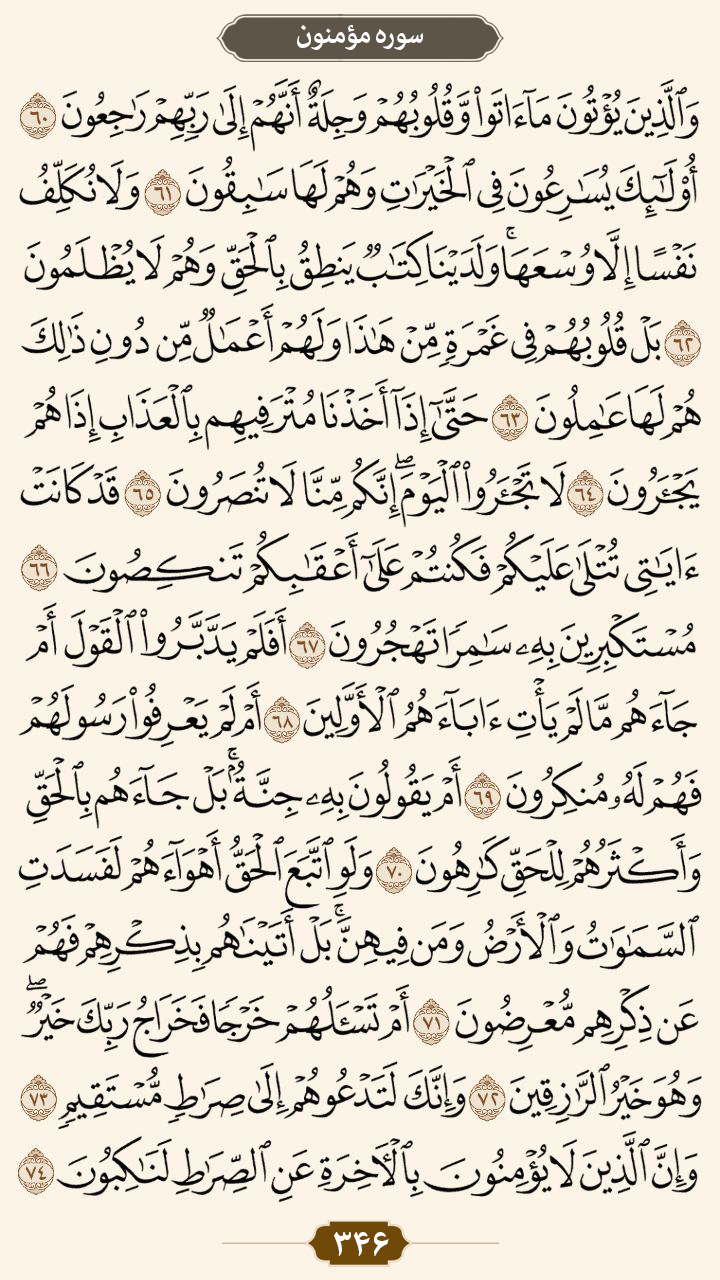 سوره مؤمنون
وَٱلَّذِينَ يُؤْتُونَ مَآ ءَاتَوا۟ وَّقُلُوبُهُمْ وَجِلَةٌ أَنَّهُمْ إِلَىٰ رَبِّهِمْ رَٰجِعُونَ ٦٠
أُو۟لَـٰٓئِكَ يُسَـٰرِعُونَ فِى ٱلْخَيْرَٰتِ وَهُمْ لَهَا سَـٰبِقُونَ ٦١ وَلَا نُكَلِّفُ
نَفْسًا إِلَّا وُسْعَهَا ۚ وَلَدَيْنَا كِتَـٰبٌ يَنطِقُ بِٱلْحَقِّ وَهُمْ لَا يُظْلَمُونَ
٦٢ بَلْ قُلُوبُهُمْ فِى غَمْرَةٍ مِّنْ هَـٰذَا وَلَهُمْ أَعْمَـٰلٌ مِّن دُونِ ذَٰلِكَ
هُمْ لَهَا عَـٰمِلُونَ ٦٣ حَتَّىٰٓ إِذَآ أَخَذْنَا مُتْرَفِيهِم بِٱلْعَذَابِ إِذَا هُمْ
يَجْـَٔرُونَ ٦٤ لَا تَجْـَٔرُوا۟ ٱلْيَوْمَ ۖ إِنَّكُم مِّنَّا لَا تُنصَرُونَ ٦٥ قَدْ كَانَتْ
ءَايَـٰتِى تُتْلَىٰ عَلَيْكُمْ فَكُنتُمْ عَلَىٰٓ أَعْقَـٰبِكُمْ تَنكِصُونَ ٦٦
مُسْتَكْبِرِينَ بِهِۦ سَـٰمِرًا تَهْجُرُونَ ٦٧ أَفَلَمْ يَدَّبَّرُوا۟ ٱلْقَوْلَ أَمْ
جَآءَهُم مَّا لَمْ يَأْتِ ءَابَآءَهُمُ ٱلْأَوَّلِينَ ٦٨ أَمْ لَمْ يَعْرِفُوا۟ رَسُولَهُمْ
فَهُمْ لَهُۥ مُنكِرُونَ ٦٩ أَمْ يَقُولُونَ بِهِۦ جِنَّةٌۢ ۚ بَلْ جَآءَهُم بِٱلْحَقِّ
وَأَكْثَرُهُمْ لِلْحَقِّ كَـٰرِهُونَ ٧٠ وَلَوِ ٱتَّبَعَ ٱلْحَقُّ أَهْوَآءَهُمْ لَفَسَدَتِ
ٱلسَّمَـٰوَٰتُ وَٱلْأَرْضُ وَمَن فِيهِنَّ ۚ بَلْ أَتَيْنَـٰهُم بِذِكْرِهِمْ فَهُمْ
عَن ذِكْرِهِم مُّعْرِضُونَ ٧١ أَمْ تَسْـَٔلُهُمْ خَرْجًا فَخَرَاجُ رَبِّكَ خَيْرٌ ۖ
وَهُوَ خَيْرُ ٱلرَّٰزِقِينَ ٧٢ وَإِنَّكَ لَتَدْعُوهُمْ إِلَىٰ صِرَٰطٍ مُّسْتَقِيمٍ ٧٣
وَإِنَّ ٱلَّذِينَ لَا يُؤْمِنُونَ بِٱلْـَٔاخِرَةِ عَنِ ٱلصِّرَٰطِ لَنَـٰكِبُونَ ٧٤
۳۴۶